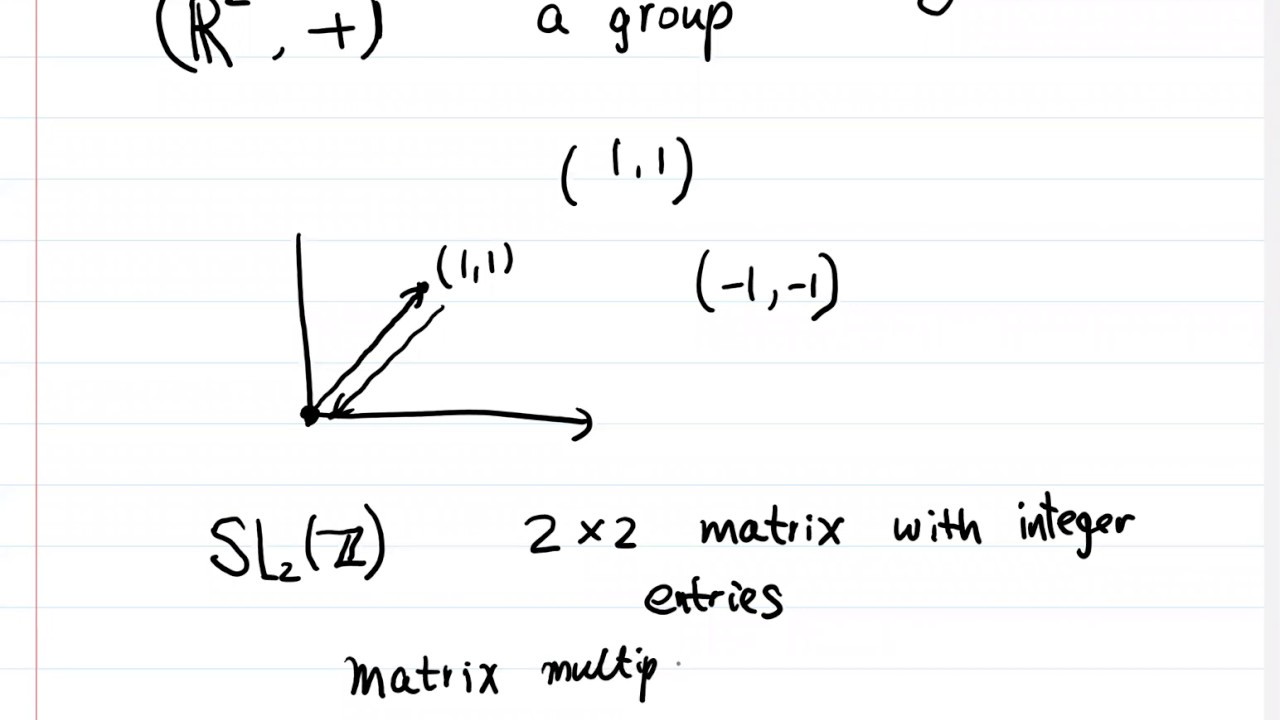 (ℝ², +) a group
(1,1)
(1,1)
(-1,-1)
SL₂(ℤ) 2×2 matrix with integer
entries
matrix multip